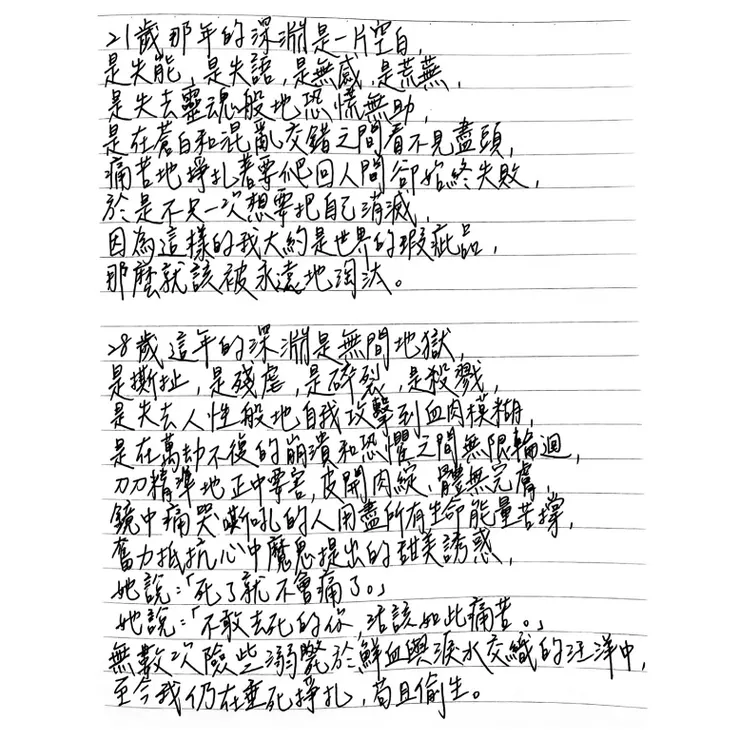 21歲那年的深淵是一片空白，
是失能，是失語，是無感，是荒蕪，
是失去靈魂般地恐慌無助，
是在蒼白和混亂交錯之間看不見盡頭，
痛苦地掙扎著要爬回人間卻始終失敗，
於是不只一次想要把自己消滅，
因為這樣的我大約是世界的瑕疵品，
那麼就該被永遠地淘汰。
28歲這年的深淵是無間地獄，
是撕扯，是殘虐，是碎裂，是殺戮，
是失去人性般地自我攻擊到血肉模糊，
是在萬劫不復的崩潰和恐懼之間無限輪迴，
刀刀精準地正中要害，皮開肉綻，體無完膚，
鏡中痛哭嘶吼的人用盡所有生命能量苦撐，
奮力抵抗心中魔鬼提出的甜美誘惑，
她說：「死了就不會痛了。」
她說：「不敢去死的你，活該如此痛苦。」
無數次險些溺斃於鮮血與淚水交織的汪洋中，
至今我仍在垂死掙扎，苟且偷生。